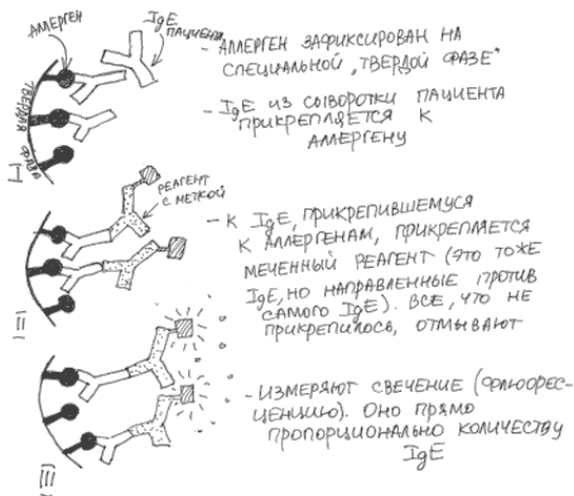 АЛЛЕРГЕН
IgE
ПАЦИЕНТА
ТВЕРДАЯ ФАЗА
I
- АЛЛЕРГЕН ЗАФИКСИРОВАН НА
СПЕЦИАЛЬНОЙ „ТВЕРДОЙ ФАЗЕ"
- IgE ИЗ СЫВОРОТКИ ПАЦИЕНТА
ПРИКРЕПЛЯЕТСЯ К
АЛЛЕРГЕНУ
РЕАГЕНТ
С МЕТКОЙ
II
- К IgE, ПРИКРЕПИВШЕМУСЯ
К АЛЛЕРГЕНАМ, ПРИКРЕПЛЯЕТСЯ
МЕЧЕННЫЙ РЕАГЕНТ (ЭТО ТОЖЕ
IgE, НО НАПРАВЛЕННЫЕ ПРОТИВ
САМОГО IgE). ВСЕ, ЧТО НЕ
ПРИКРЕПИЛОСЬ, ОТМЫВАЮТ
III
- ИЗМЕРЯЮТ СВЕЧЕНИЕ (ФЛЮОРЕС-
ЦЕНЦИЮ). ОНО ПРЯМО
ПРОПОРЦИОНАЛЬНО КОЛИЧЕСТВУ
IgE